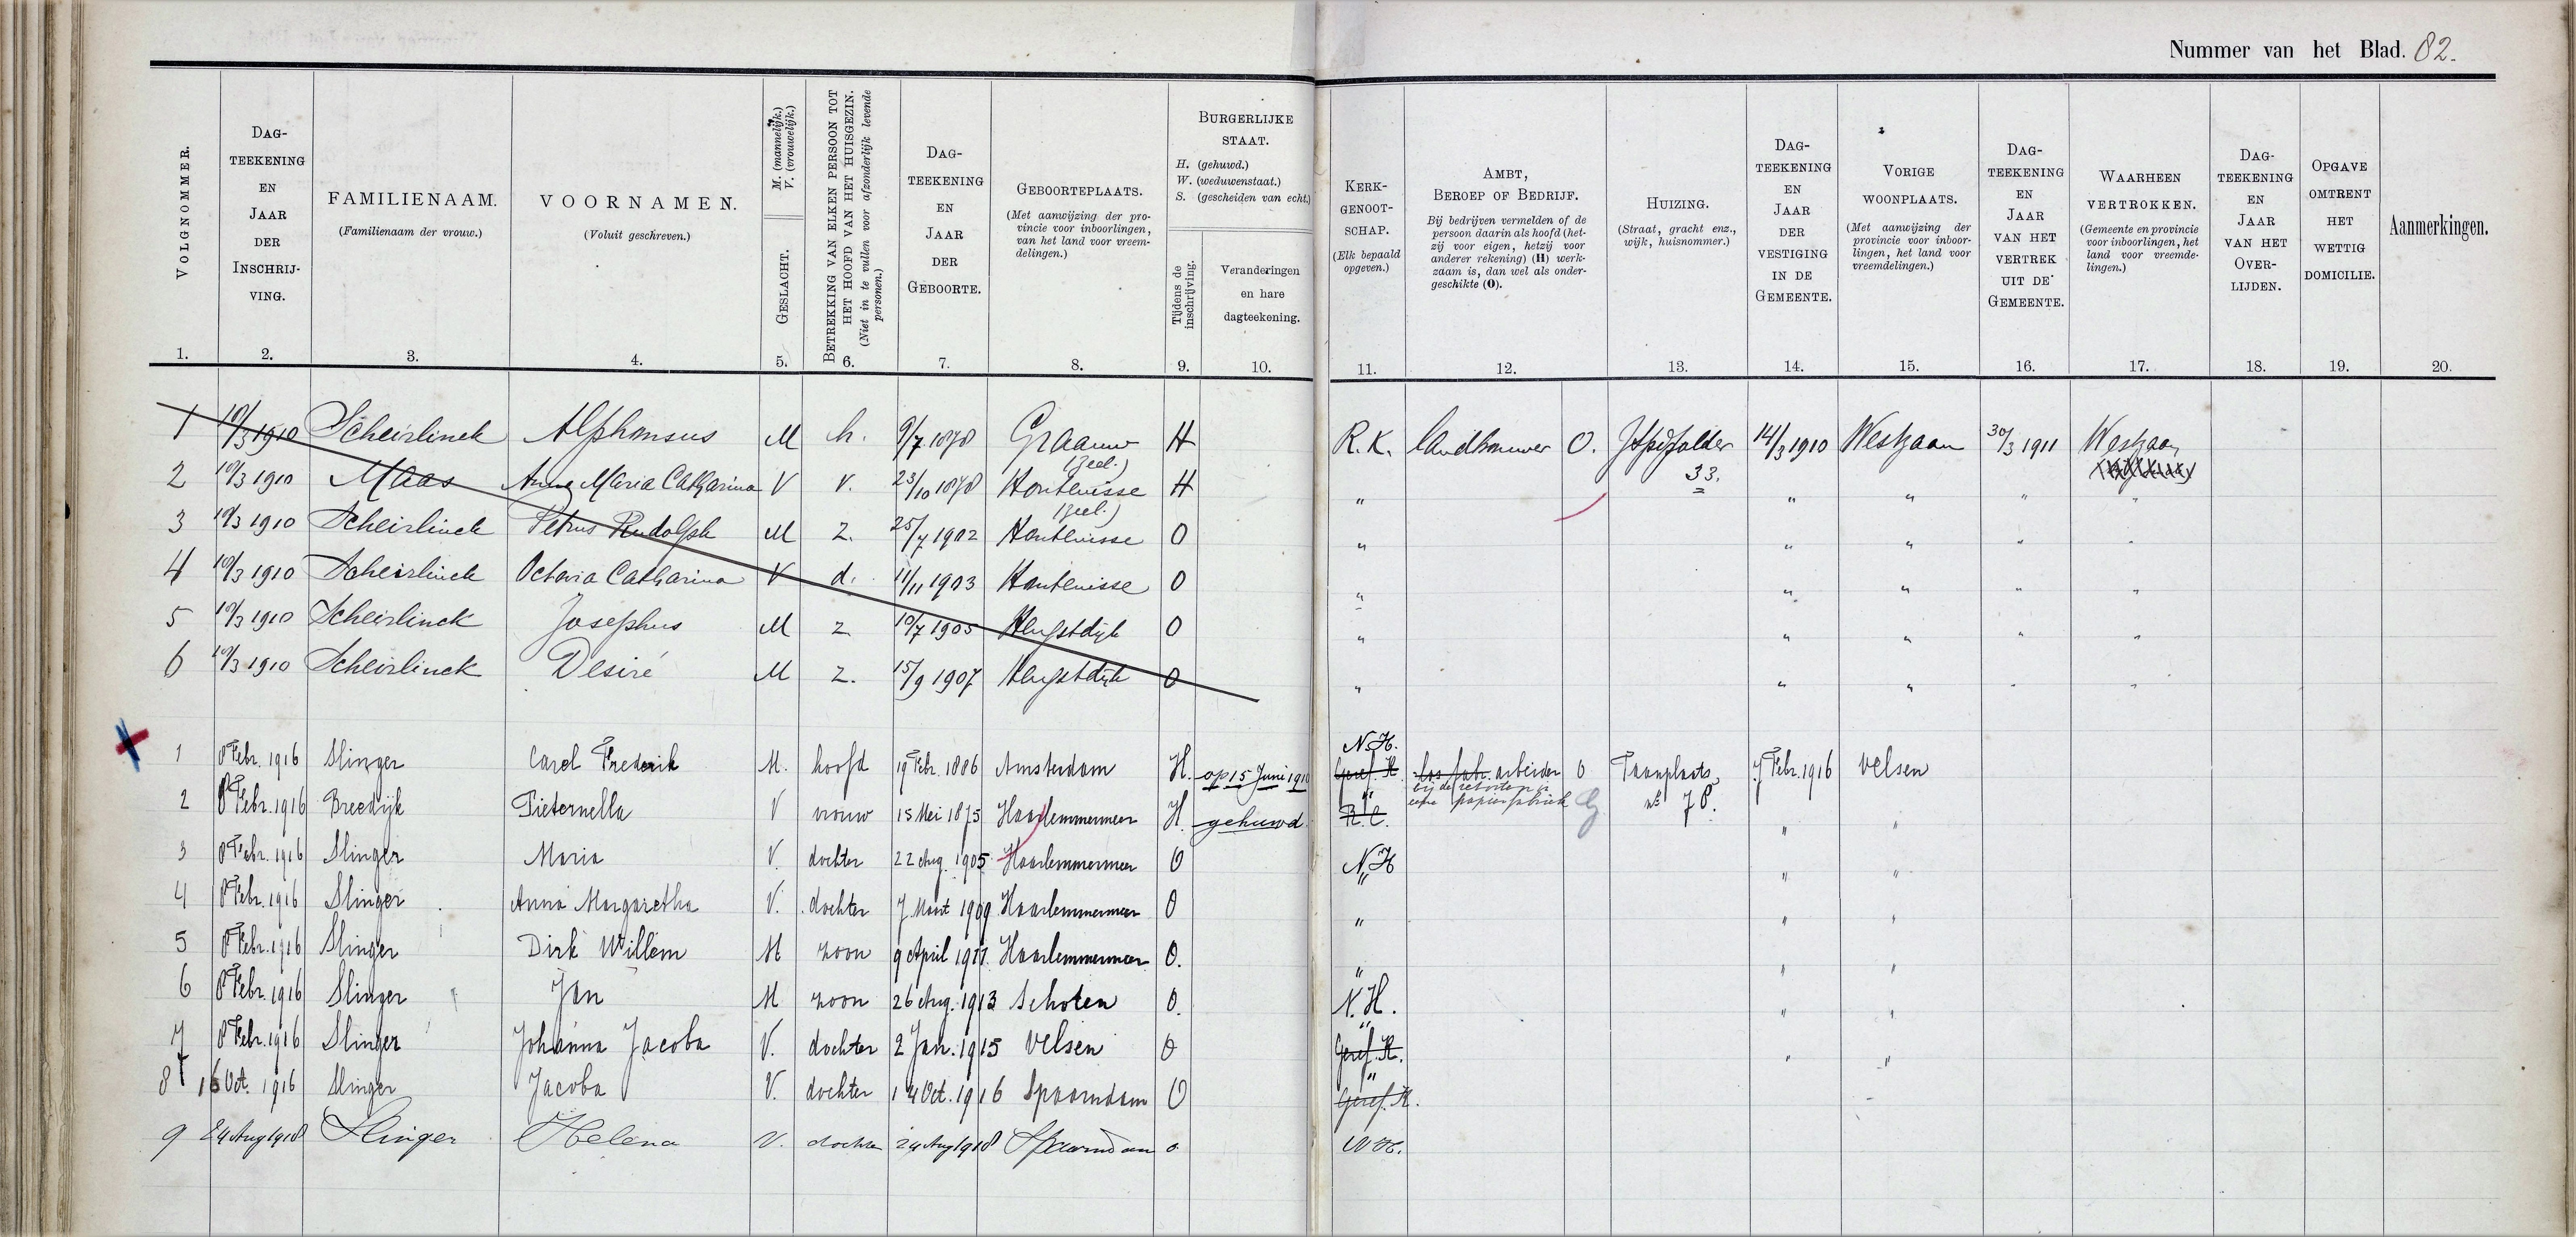 Nummer van het Blad. 82.
VOLGNOMMER.
1.
DAG-
TEEKENING
EN
JAAR
DER
INSCHRIJ-
VING.
2.
FAMILIENAAM.
(Familienaam der vrouw.)
3.
VOORNAMEN.
(Voluit geschreven.)
4.
M. (mannelijk.)
V. (vrouwelijk.)
GESLACHT.
5.
BETREKKING VAN ELKEN PERSOON TOT
HET HOOFD VAN HET HUISGEZIN.
(Niet in te vullen voor afzonderlijk levende
personen.)
6.
DAG-
TEEKENING
EN
JAAR
DER
GEBOORTE.
7.
GEBOORTEPLAATS.
(Met aanwijzing der pro-
vincie voor inboorlingen,
van het land voor vreem-
delingen.)
8.
BURGERLIJKE
STAAT.
H. (gehuwd.)
W. (weduwenstaat.)
S. (gescheiden van echt.)
Tijdens de
inschrijving.
9.
Veranderingen
en hare
dagteekening.
10.
KERK-
GENOOT-
SCHAP.
(Elk bepaald
opgeven.)
11.
AMBT,
BEROEP OF BEDRIJF.
Bij bedrijven vermelden of de
persoon daarin als hoofd (het-
zij voor eigen, hetzij voor
anderer rekening) (H) werk-
zaam is, dan wel als onder-
geschikte (O).
12.
HUIZING.
(Straat, gracht enz.,
wijk, huisnommer.)
13.
DAG-
TEEKENING
EN
JAAR
DER
VESTIGING
IN DE
GEMEENTE.
14.
VORIGE
WOONPLAATS.
(Met aanwijzing der
provincie voor inboor-
lingen, het land voor
vreemdelingen.)
15.
DAG-
TEEKENING
EN
JAAR
VAN HET
VERTREK
UIT DE
GEMEENTE.
16.
WAARHEEN
VERTROKKEN.
(Gemeente en provincie
voor inboorlingen, het
land voor vreemde-
lingen.)
17.
DAG-
TEEKENING
EN
JAAR
VAN HET
OVER-
LIJDEN.
18.
OPGAVE
OMTRENT
HET
WETTIG
DOMICILIE.
19.
Aanmerkingen.
20.
1 10/3 1910 Scheirlinck Alphonsus M h. 9/7 1878 Graauw (Zeel.) H R.K. landbouwer O. 33. 14/3 1910 Westzaan 30/3 1911 Westzaan
2 10/3 1910 Maas Anna Maria Catharina V v. 23/10 1878 Hontenisse (Zeel.) H " " " " "
3 10/3 1910 Scheirlinck Petrus Rudolph M z. 25/7 1902 Hontenisse O " " " " "
4 10/3 1910 Scheirlinck Octavia Catharina V d. 11/11 1903 Hontenisse O " " " " "
5 10/3 1910 Scheirlinck Josephus M z 10/7 1905 Hengstdijk O " " " " "
6 10/3 1910 Scheirlinck Desiré M z. 15/9 1907 Hengstdijk O " " " " "
1 8 Febr. 1916 Slinger Carel Frederik M. hoofd 19 Febr. 1886 Amsterdam H. op 15 Juni 1910 N.H. Geref. K. los fabr. arbeider O 7 Febr. 1916 Velsen
2 8 Febr. 1916 Breedijk Pieternella V vrouw 15 Mei 1875 Haarlemmermeer H. gehuwd. " R.C. papierfabriek nº 78. " "
3 8 Febr. 1916 Slinger Maria V. dochter 22 Aug. 1905 Haarlemmermeer O N.H " "
4 8 Febr. 1916 Slinger Anna Margaretha V. dochter 7 Maart 1909 Haarlemmermeer O " " "
5 8 Febr. 1916 Slinger Dirk Willem M zoon 9 April 1911 Haarlemmermeer O. " " "
6 8 Febr. 1916 Slinger Jan M zoon 26 Aug. 1913 Schoten O. N.H. " "
7 8 Febr. 1916 Slinger Johanna Jacoba V. dochter 2 Jan. 1915 Velsen O " Geref. K. " "
8 16 Oct. 1916 Slinger Jacoba V. dochter 14 Oct. 1916 Spaarndam O " Geref. K.
9 24 Aug 1918 Slinger Helena V. dochter 24 Aug 1918 Spaarndam o. N.H.